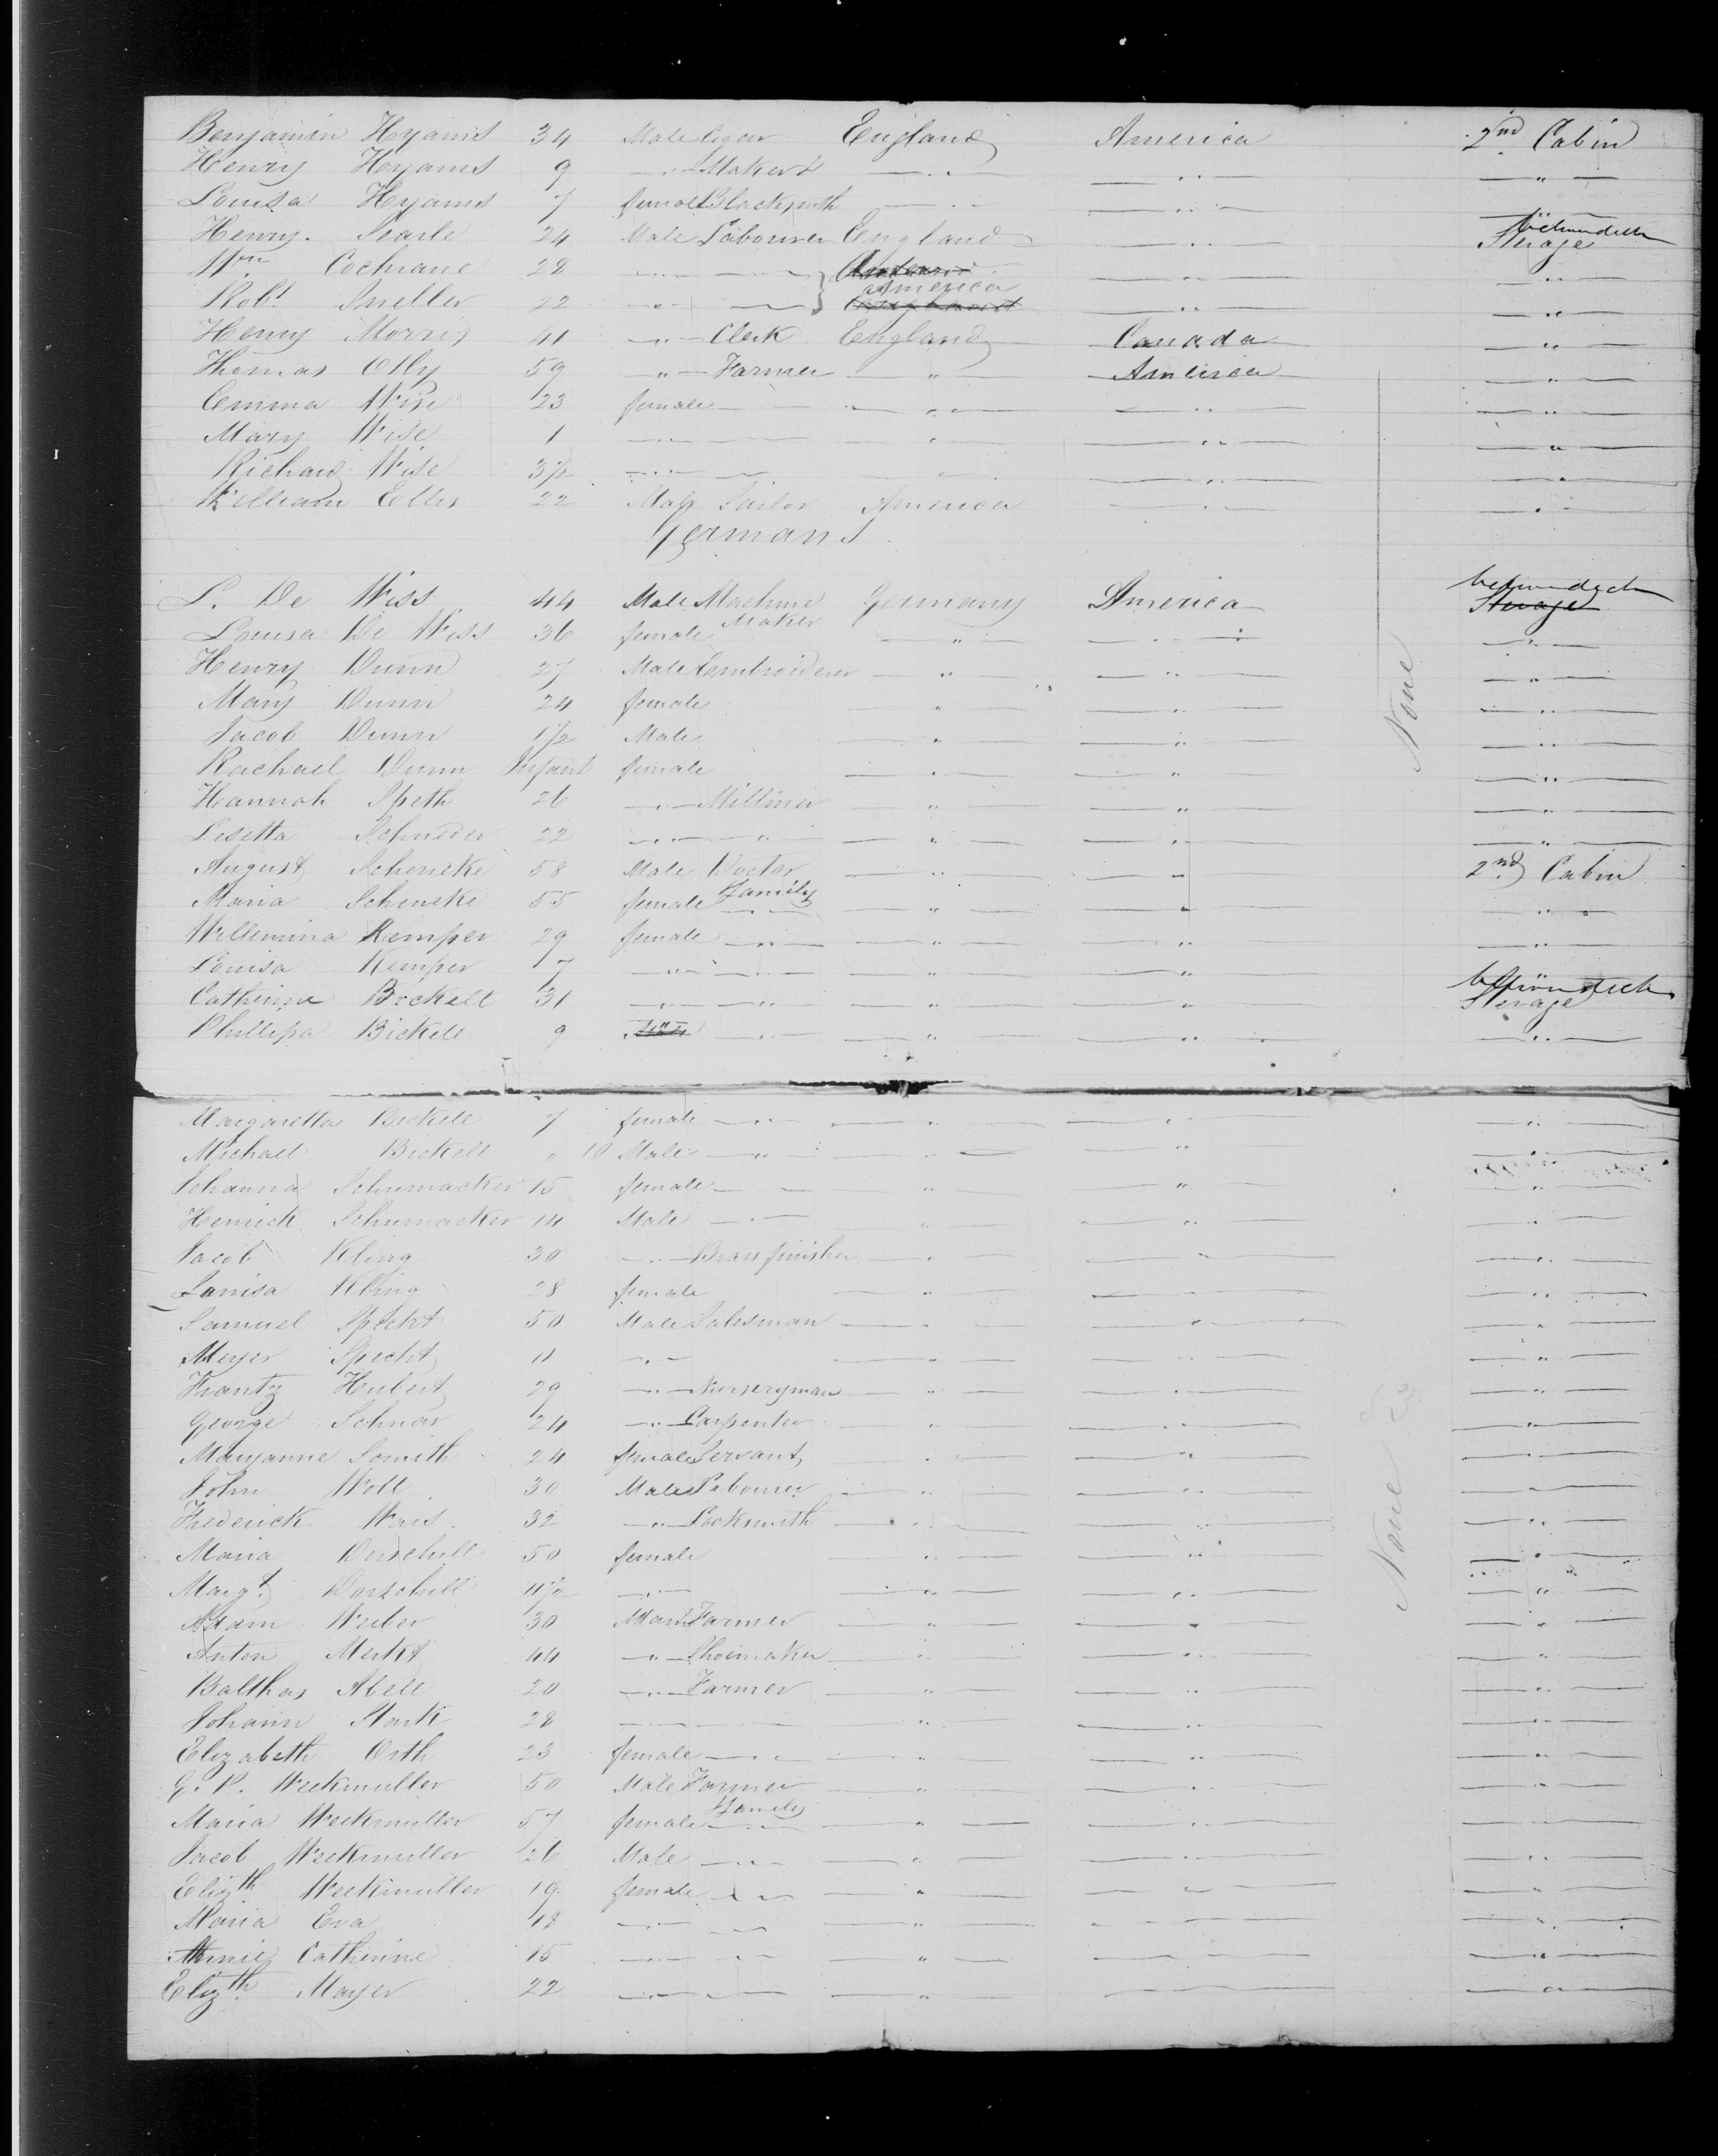 Benjamin Hyams 34 Male Cigar England America 2nd Cabin
Henry Hyams 9 — " — Maker — " — — " — — " —
Louisa Hyams 7 female Blacksmith — " — — " —
Henry Searle 24 Male Labourer England — " — Steerage
Wm Cochrane 28 — " — — " — — " —
America
Robt Sneller 22 — " — — England — " — — " —
Henry Morris 41 — " — Clerk England Canada — " —
Thomas Olly 59 — " — Farmer — " — America — " —
Emma Wise 23 female — " — — " — — " —
Mary Wise 1 — " — — " — — " — — " —
Richard Wise 3½ — " — — " — — " —
William Ellis 22 Male Sailor America — " — — " —
Germans
L. De Wiss 44 Male Machine Germany America Sterage
Louisa De Wiss 36 female Maker — " — — " — — " —
Henry Dunn 27 Male Embroiderer — " — — " — — " —
Mary Dunn 24 female — " — — " — — " —
Jacob Dunn 1½ Male — " — — " — — " —
None
Rachael Dunn Infant female — " — — " — — " —
Hannah Speth 26 — " — Milliner — " — — " — — " —
Lesetta Schneder 22 — " — — " — — " — — " — — " —
August Scheneke 58 Male Doctor — " — — " — 2nd Cabin
Maria Scheneke 55 female Family — " — — " — — " —
Willemina Kemper 29 female — " — — " — — " — — " —
Louisa Kemper 7 — " — — " — — " — — " —
Catherine Bickell 31 — " — — " — — " — — " — Sterage
Phillipa Bickell 9 — " — — " — — " — — " —
Margaretta Bickell 7 female — " — — " — — " — — " —
Michael Bickell " 10 Male — " — — " — " — " —
Johanna Schumacker 15 female — " — — " — — " — — " —
Henrick Schumacker 14 Male — " — — " — — " — — " —
Jacob Kling 30 — " — Brass finisher — " — — " — — " —
Louisa Kling 28 female — " — — " — — " —
Samuel Specht 50 Male Salesman — " — — " — — " —
Meyer Specht 11 — " — — " — — " — — " —
Frantz Hubert 29 — " — Nurseryman — " — — " — — " —
George Schnar 24 — " — Carpenter — " — — " — — " —
Maryanne Somith 24 female Servant — " — — " — — " —
John Woll 30 Male Labourer — " — — " — — " —
None
Frederick Wais 32 — " — Locksmith — " — — " — — " —
Maria Dorschill 50 female — " — — " — — " —
Margt Dorschill 11½ — " — — " — — " — — " —
Adam Weiber 30 Male Farmer — " — — " — — " —
Anton Merkt 44 — " — Shoemaker — " — — " — — " —
Balthas Abell 20 — " — Farmer — " — — " — — " —
Johann Stark 28 — " — — " — — " — — " —
Elizabeth Orth 23 female — " — — " — — " — — " —
G. P. Weckmuller 50 Male Farmer — " — — " — — " —
Maria Weckmuller 57 female Family — " — — " — — " —
Jacob Weckmuller 26 Male — " — — " — — " — — " —
Elizth Weckmuller 19 female — " — — " — — " — — " —
Maria Eva 18 — " — — " — — " — — " — — " —
Annie Catherine 15 — " — — " — — " — — " — — " —
Elizth Mayer 22 — " — — " — — " — — " —